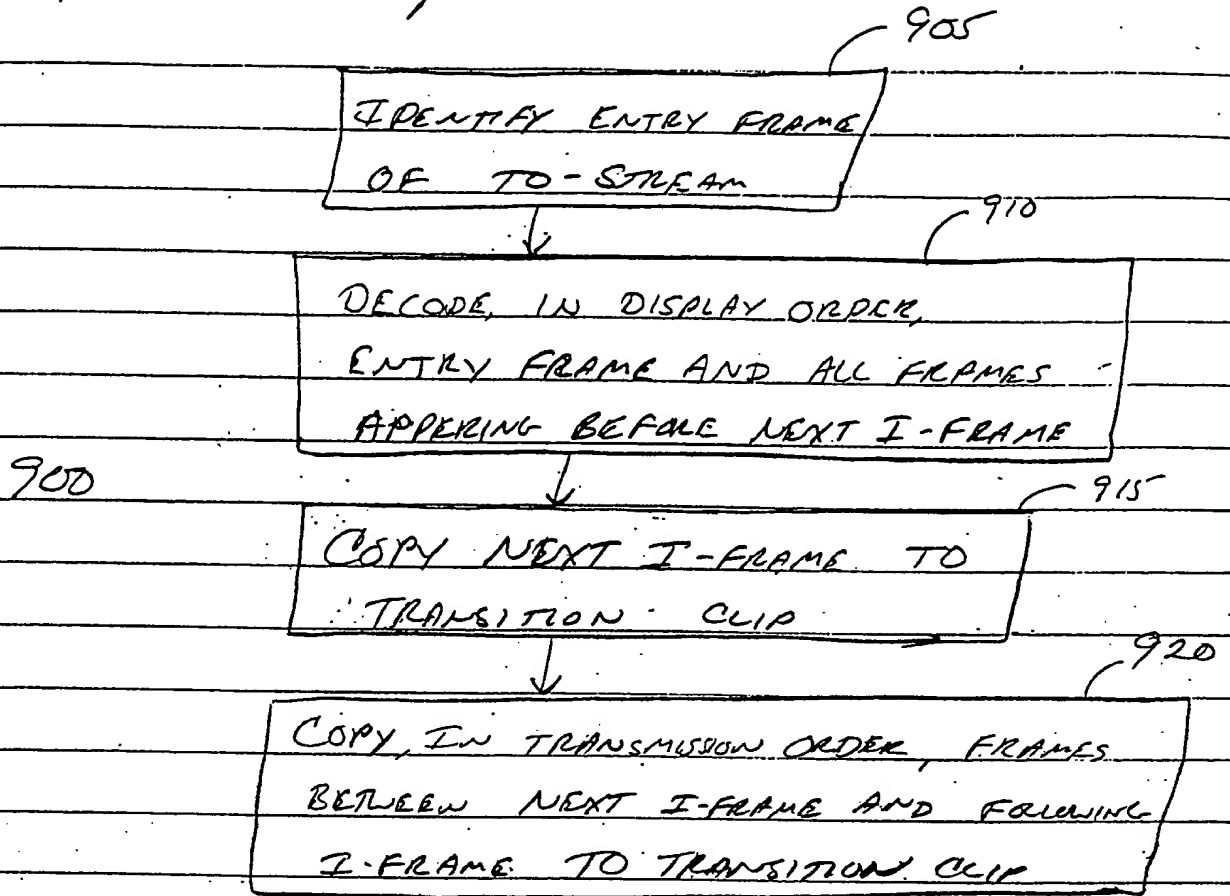 905
IDENTIFY ENTRY FRAME
OF TO-STREAM
910
DECODE, IN DISPLAY ORDER,
ENTRY FRAME AND ALL FRAMES
APPERING BEFORE NEXT I-FRAME
900
915
COPY NEXT I-FRAME TO
TRANSITION CLIP
920
COPY, IN TRANSMISSION ORDER, FRAMES
BETWEEN NEXT I-FRAME AND FOLLOWING
I-FRAME TO TRANSITION CLIP